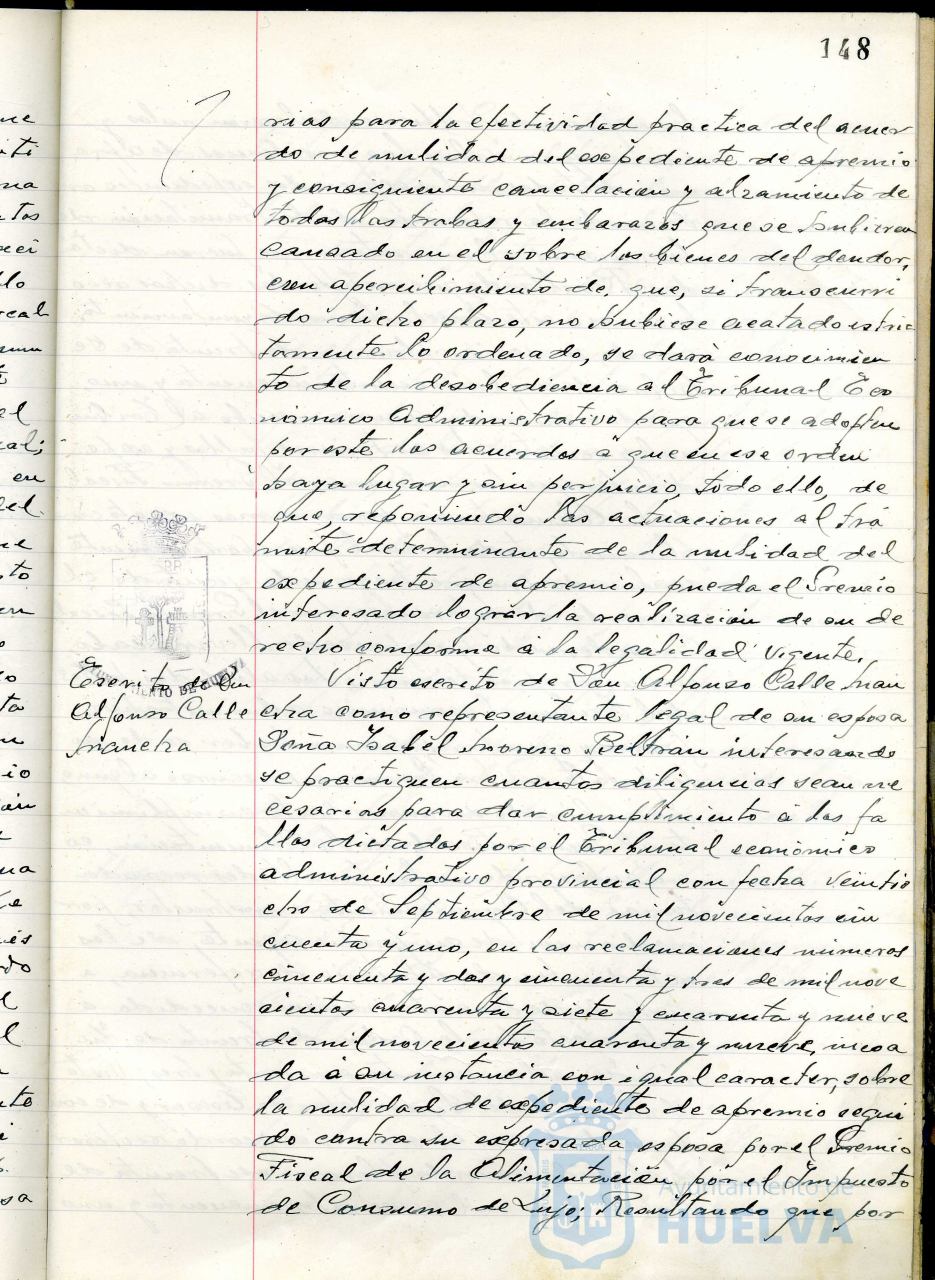 148
rias para la efectividad practica del acuer
do de nulidad del expediente de apremio
y consiguiente cancelación y alzamiento de
todas las trabas y embarazos que se hubieren
causado en el sobre los bienes del deudor,
con apercibimiento de que, si transcurri
do dicho plazo, no hubiese acatado estric
tamente lo ordenado, se dará conocimien
to de la desobediencia al Tribunal Eco
nómico Administrativo para que se adopten
por este los acuerdos á que en ese orden
haya lugar y sin perjuicio, todo ello, de
que, reponiendo las actuaciones al trá
mite determinante de la nulidad del
expediente de apremio, pueda el Gremio
interesado lograr la realización de su de
recho conforme á la legalidad vigente.
Escrito de Don
Alfonso Calle
Mancha
Visto escrito de Don Alfonso Calle Man
cha como representante legal de su esposa
Doña Isabel Moreno Beltrán interesando
se practiquen cuantas diligencias sean ne
cesarias para dar cumplimiento á los fa
llos dictados por el Tribunal económico
administrativo provincial con fecha veintio
cho de Septiembre de mil novecientos cin
cuenta y uno, en las reclamaciones números
cincuenta y dos y cincuenta y tres de mil nove
cientos cuarenta y siete y cuarenta y nueve
de mil novecientos cuarenta y nueve, incoa
da á su instancia con igual caracter, sobre
la nulidad de expediente de apremio segui
do contra su expresada esposa por el Gremio
Fiscal de la Alimentación por el Impuesto
de Consumo de Lujo; Resultando que por
Ayuntamiento de
HUELVA